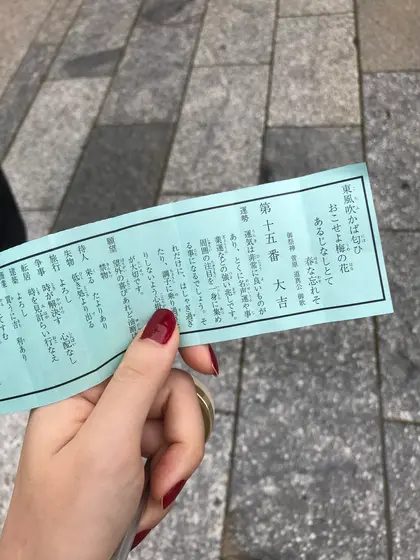 東風吹かば匂ひ
おこせよ梅の花
あるじなしとて
春な忘れそ
御祭神 菅原道真公 御歌
第十五番 大吉
運勢
運気は非常に良いものが
あり、とくに名声運や事
業運などの強い兆しです。
周囲の注目を一身に集め
る事になるでしょう。そ
れだけに、はしゃぎ過ぎ
たり、調子に乗り
りしないよう
が大切です。
願望 望外の喜びあれど油断
禁物
待人 来る たよりあり
失物 低き処より出る
旅行 よろし 心配なし
争事 時が解決す
転居 時を見計らい行なえ
建築 よろし